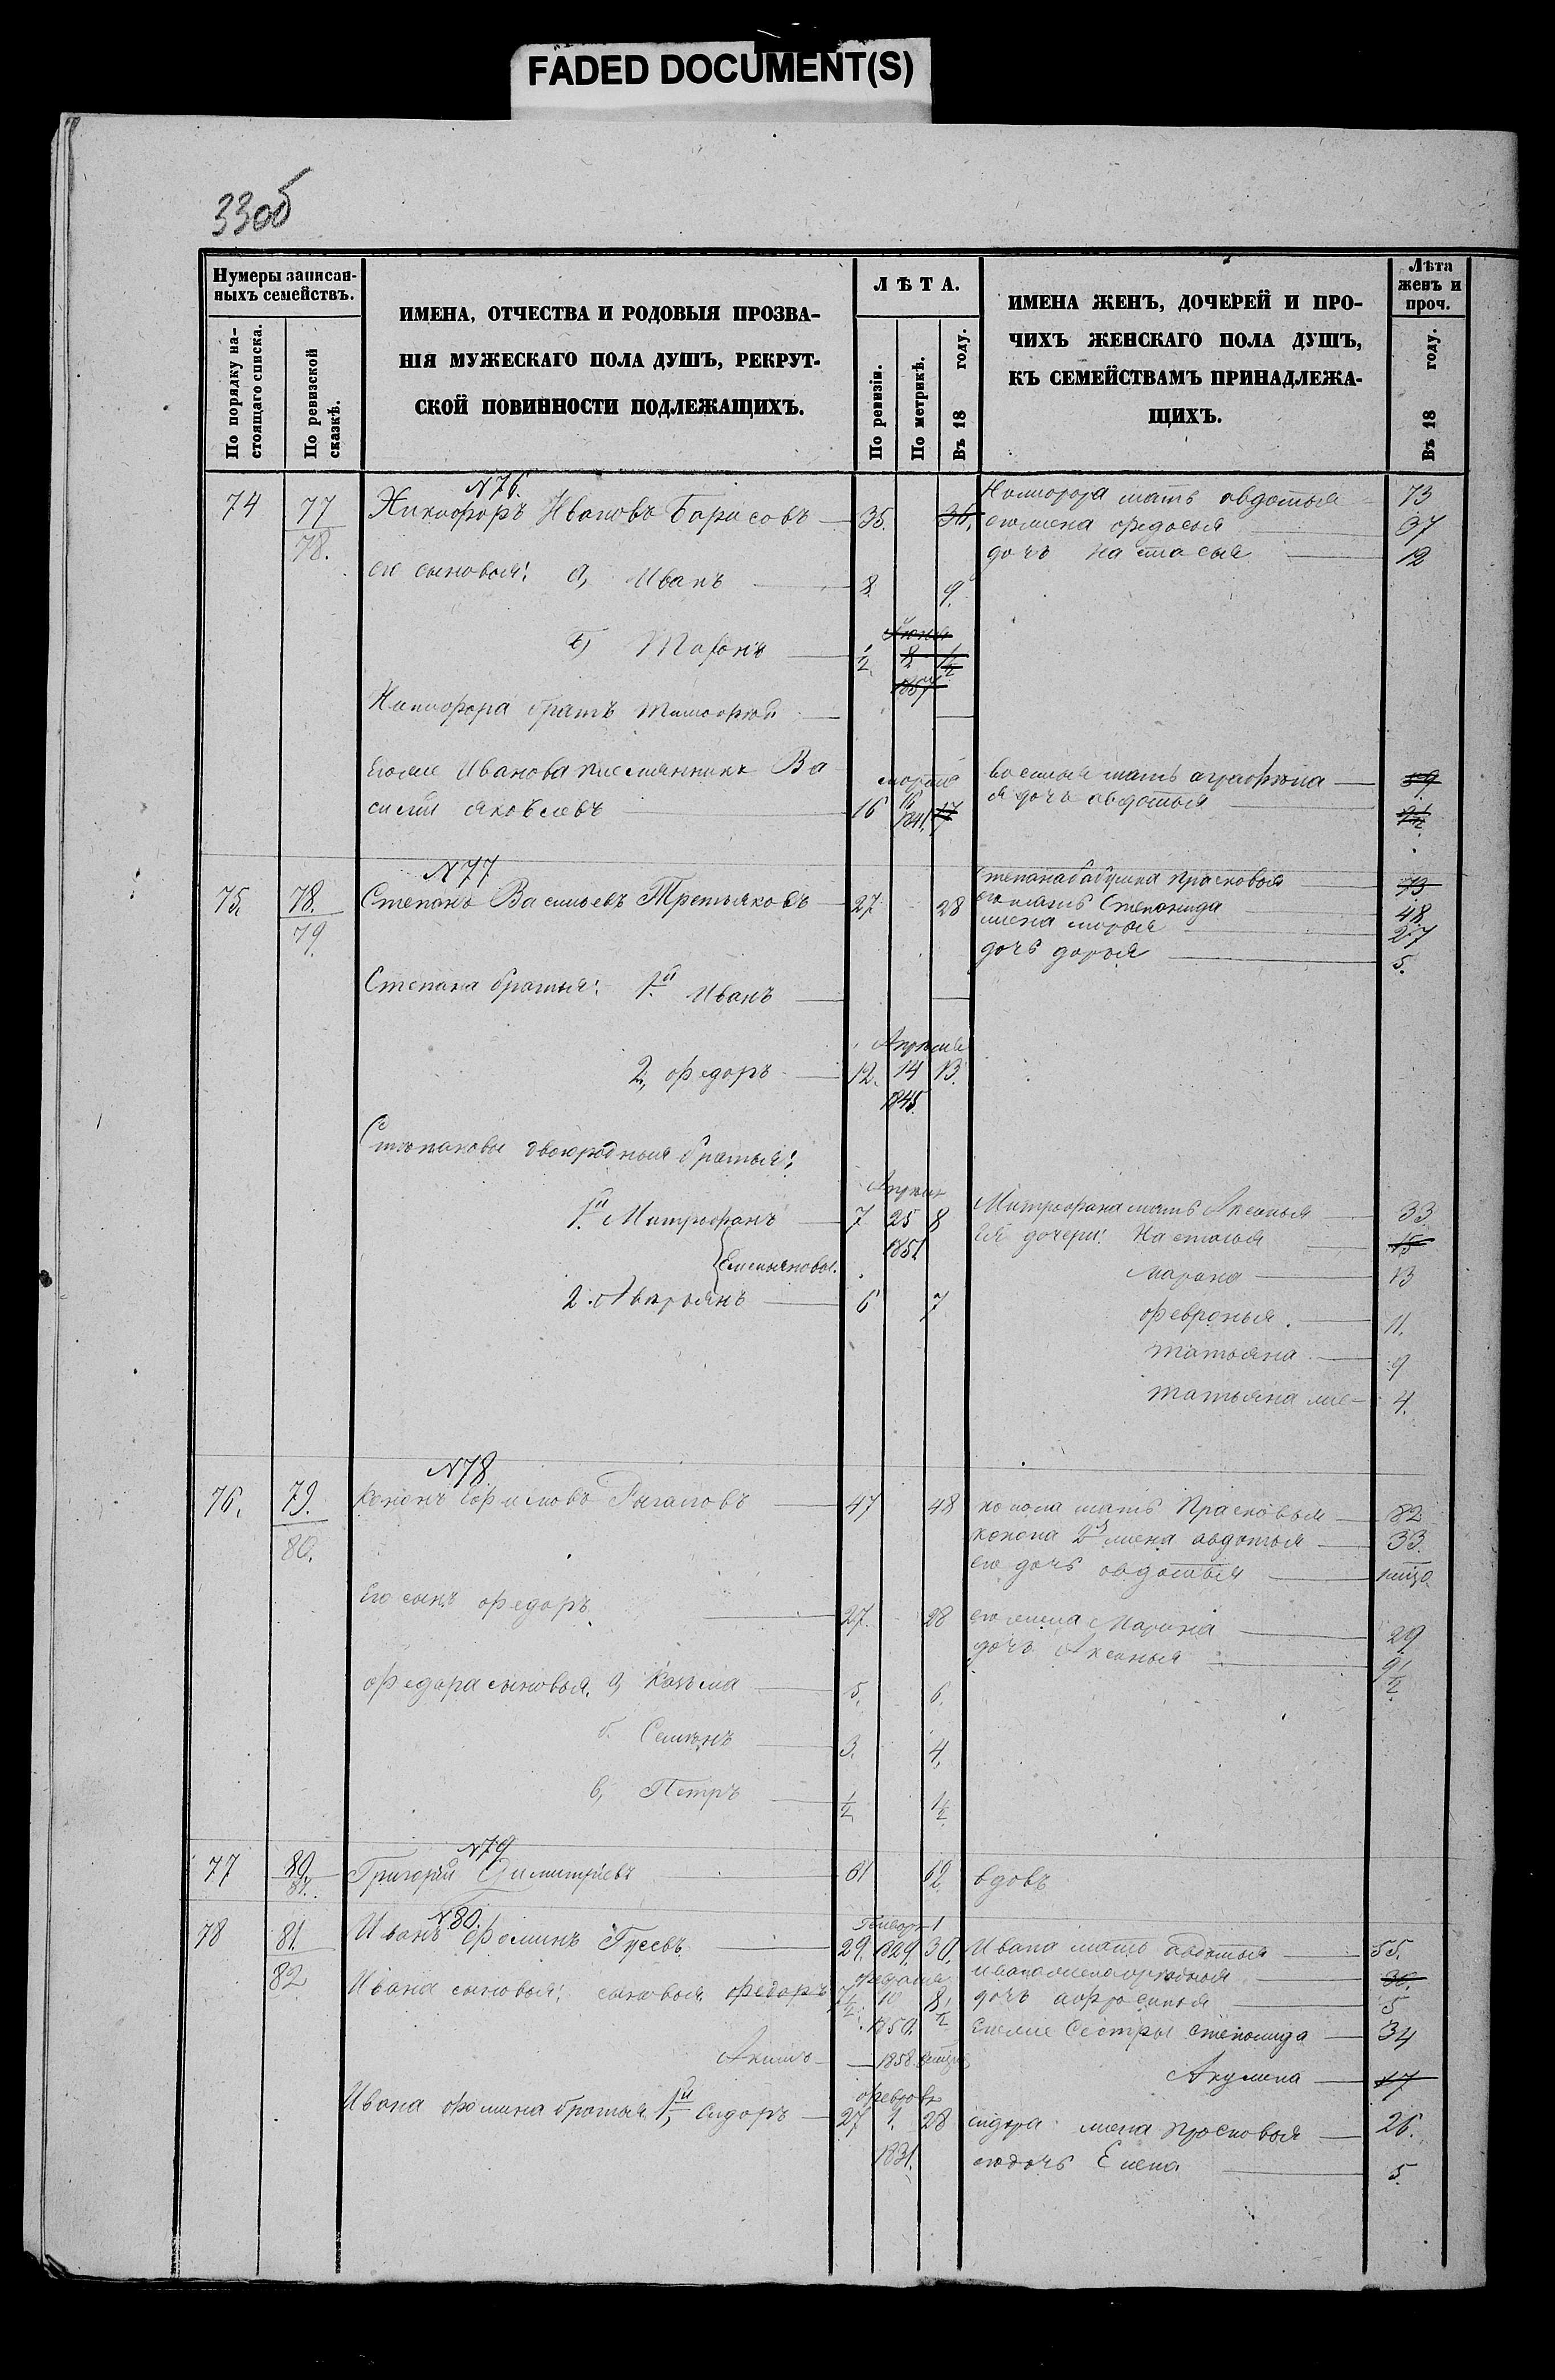 FADED DOCUMENT(S)
33об
Нумеры записан-
ныхъ семействъ.
По порядку на-
стоящаго списка.
По ревизской
сказкѣ.
ИМЕНА, ОТЧЕСТВА И РОДОВЫЯ ПРОЗВА-
НІЯ МУЖЕСКАГО ПОЛА ДУШЪ, РЕКРУТ-
СКОЙ ПОВИННОСТИ ПОДЛЕЖАЩИХЪ.
ЛѢТА.
По ревизіи.
По метрикѣ.
Въ 18 году.
ИМЕНА ЖЕНЪ, ДОЧЕРЕЙ И ПРО-
ЧИХЪ ЖЕНСКАГО ПОЛА ДУШЪ,
КЪ СЕМЕЙСТВАМЪ ПРИНАДЛЕЖА-
ЩИХЪ.
Лѣта
женъ и
проч.
Въ 18 году.
N76.
74 77 Никифоръ Ивановъ Борисовъ 35. 36. Никифора мать авдотья 73
78. его жена федосья 37
дочь настасья 12
его сыновья: а, Иванъ 8. 9.
Июня
б, 1/2 8 1 1/2
1857
Никифора братъ тимофей
Егоже Иванова племянникъ Ва
силій яковлевъ 16 марта 16 1841. 17
василья мать аграфена 39
ея дочь авдотья
N77
75. 78. Степанъ Васильевъ Третьяковъ 27. 28
79.
степана бабушка прасковья 73
его мать Степанида 48.
жена марья 27
дочь дарья 5.
Степана братья: 1й Иванъ
Апреля
2, федоръ 12. 14 13.
1845.
Степановы двоюродныя братья:
Апреля
1й Митрофанъ 7 25 8 Митрофана мать Аксинья 33.
1851. Ея дочери: Настасья 15
Емельяновы. Марина 13
2. Аверьянъ 6 7
февронья. 11.
татьяна 9
татьяна 4.
N78
76. 79. Кононъ Ефимовъ 47 48 конона мать Прасковья 82
80. конона 2я жена авдотья 33.
его дочь авдотья
Его сынъ федоръ 27. 28 его жена Марина 29
дочь Аксинья 9 1/2
федора сыновья. а, Козьма 5. 6.
б. Семенъ 3. 4.
в, Петръ 1/2 1 1/2
N79
77 80. Григорій Димитріевъ 61 62 вдовъ
81.
N80.
78 81. Иванъ Фоминъ Гусевъ 29. Генваря 1 1829. 30. Ивана мать авдотья 55.
82 Ивана сыновья: сыновья федоръ 7 1/2 10 1850. 8 1/2
дочь афросинья 5
Егоже Сестры степанида 34
1858.
Акулина 17
Ивана фомина братья 1й, сидоръ 27 1. 28 сидора жена просковья 26.
1831. его дочь Елена 5.